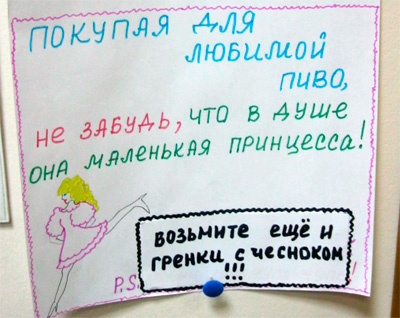 ПОКУПАЯ ДЛЯ
ЛЮБИМОЙ
ПИВО,
НЕ ЗАБУДЬ, ЧТО В ДУШЕ
ОНА МАЛЕНЬКАЯ ПРИНЦЕССА!
ВОЗЬМИТЕ ЕЩЁ И
ГРЕНКИ С ЧЕСНОКОМ
!!!
P.S.